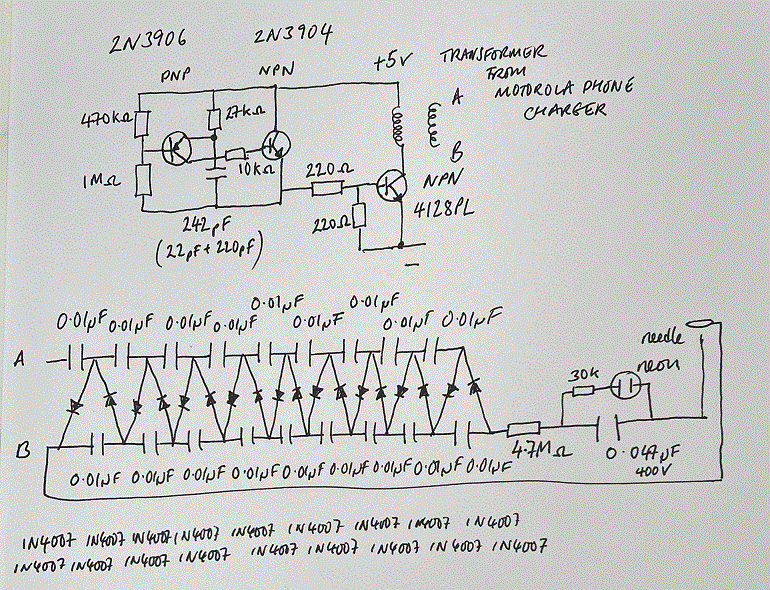 2N3906 2N3904
PNP NPN +5V TRANSFORMER
FROM
MOTOROLA PHONE
CHARGER
470kΩ 27kΩ A
1MΩ 10kΩ 220Ω B
NPN
4128PL
220Ω
242pF
(22pF + 220pF)
−
0.01µF 0.01µF 0.01µF 0.01µF 0.01µF 0.01µF 0.01µF 0.01µF 0.01µF
A
needle
30k neon
B
4.7MΩ 0.047µF
400V
0.01µF 0.01µF 0.01µF 0.01µF 0.01µF 0.01µF 0.01µF 0.01µF 0.01µF
1N4007 1N4007 1N4007 1N4007 1N4007 1N4007 1N4007 1N4007 1N4007
1N4007 1N4007 1N4007 1N4007 1N4007 1N4007 1N4007 1N4007 1N4007